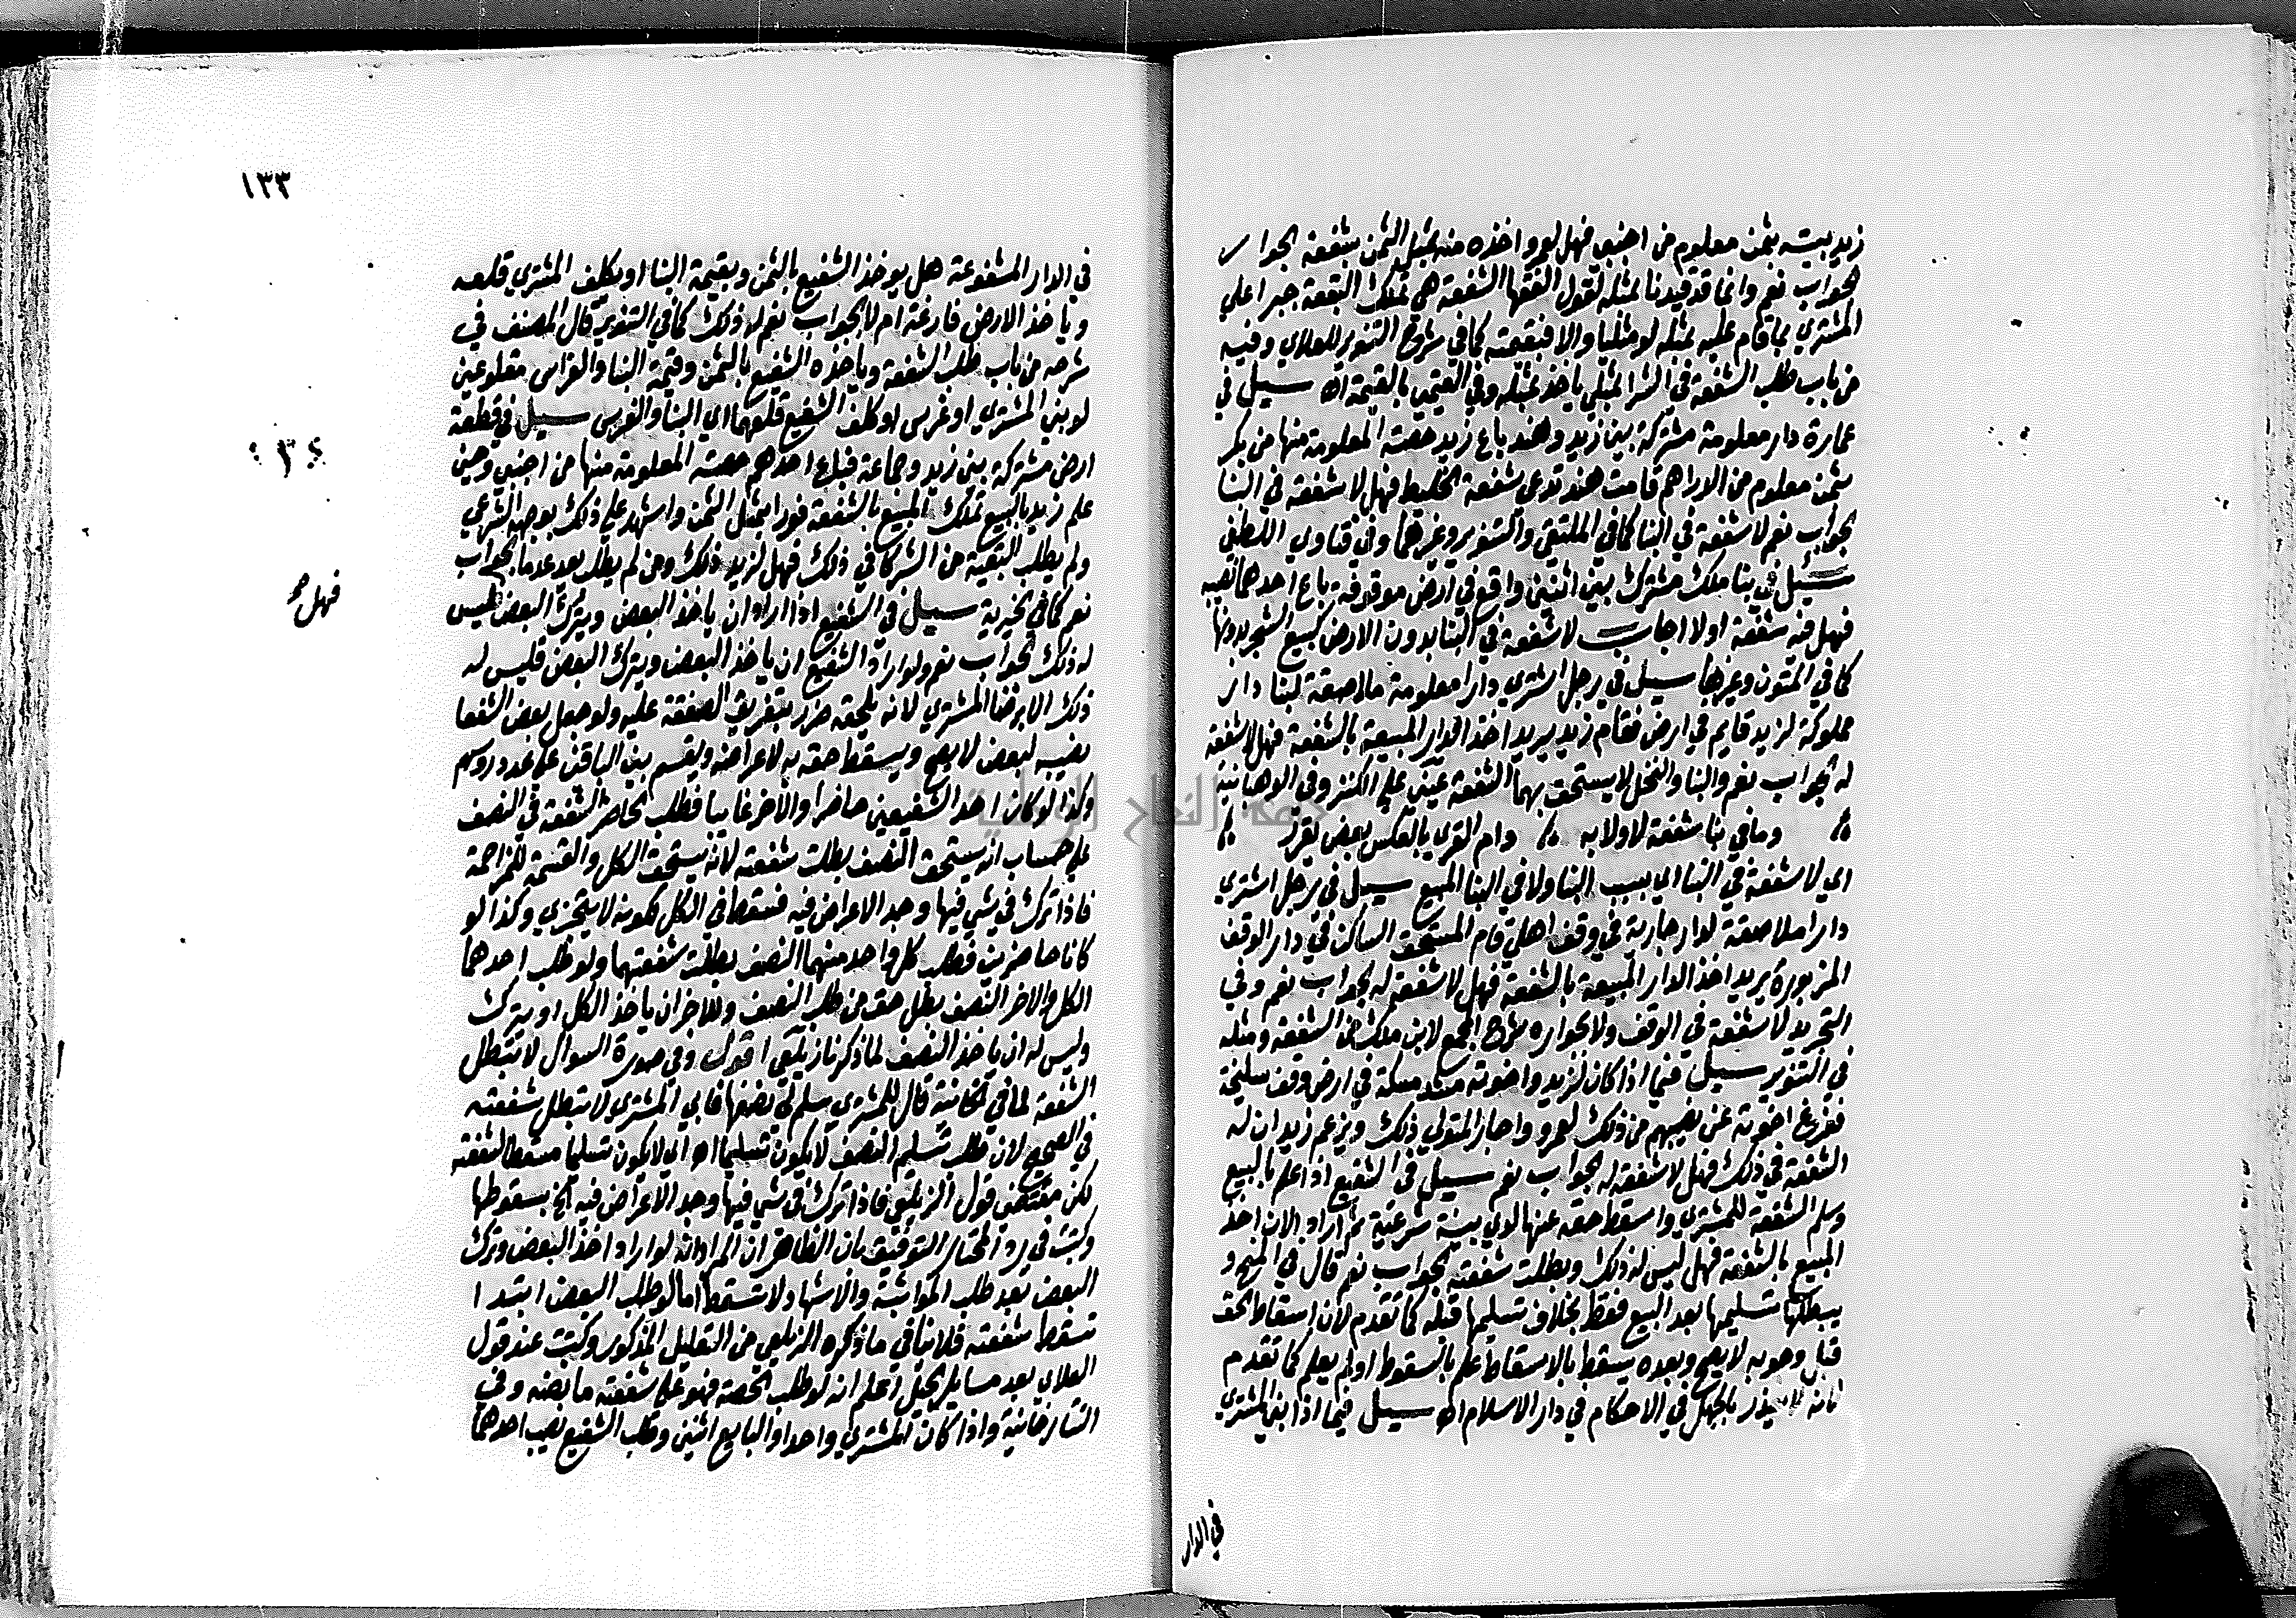 زيد بيته بثمن معلوم من اجنبي فهل لعمرو اخذه منه بمثل الثمن بشفعة الجوار
الجواب نعم وانما قد قيدنا بمثله لقول الفقها الشفعة هي تملك البقعة جبرا علي
المشتري بما قام عليه بمثله لو مثليا والا فبقيمته كما في شروح التنوير للعلاي وفيه
من باب طلب الشفعة في الشرا المثلي ياخذ بمثله وفي القيمي بالقيمة اه سيل في
عمارة دار معلومة مشتركة بين زيد وهند باع زيد حصته المعلومة منها من بكر
بثمن معلوم من الدراهم قامت هند تدعي شفعة الخليط فهل لا شفعة في البنا
الجواب نعم لا شفعة في البنا كما في الملتقي والتنوير وغيرهما وفي فتاوي اللطفي
سيل في بنا ملك مشترك بين اثنين واقع في ارض موقوفة باع احدهما نصيبه
فهل فيه شفعة اولا اجاب لا شفعة في البنا بدون الارض كبيع الشجر بدونها
كما في المتون وغيرها سيل في رجل اشتري دارا معلومة ملاصقة لبنا دار
مملوكة لزيد قايم في ارض فقام زيد يريد اخذ الدار المبيعة بالشفعة فهل لا شفعة
له الجواب نعم والبنا والنخل لا يستحق بهما الشفعة عيني علي الكنز وفي الوهبانية
وما في بنا شفعة لا ولا به وام القري بالعكس بعض يقرر
اي لا شفعة في البنا اي بسبب البنا ولا في البنا المبيع سيل في رجل اشتري
دارا ملاصقة لدار جارية في وقف اهلي قام المستحق الساكن في دار الوقف
المزبورة يريد اخذ الدار المبيعة بالشفعة فهل لا شفعة له الجواب نعم وفي
التجريد لا شفعة في الوقف ولا بجواره شرح المجمع لابن ملك من الشفعة ومثله
في التنوير سيل فيما اذا كان لزيد واخوته مشد مسكة في ارض وقف سليخة
ففرغ اخوته عن نصيبهم من ذلك لعمرو واجاز المتولي ذلك ويزعم زيد ان له
الشفعة في ذلك فهل لا شفعة له الجواب نعم سيل في الشفيع اذا علم بالبيع
وسلم الشفعة للمشتري واسقط حقه عنها لدي بينة شرعية ثم اراد الان اخذ
المبيع بالشفعة فهل ليس له ذلك وبطلت شفعته الجواب نعم قال في المنح و
يبطلها تسليمها بعد البيع فقط بخلاف تسليمها قبله كما تقدم لان اسقاط الحق
قبل وجوبه لا يصح وبعده يسقط بالاسقاط علم بالسقوط او لم يعلم كما تقدم
فانه لا يعذر بالجهل في الاحكام في دار الاسلام اه سيل فيما اذا بني المشتري
في الدار
١٣٣
في الدار المشفوعة هل يوخذ الشفيع بالثمن وبقيمة البنا او يكلف المشتري قلعه
وياخذ الارض فارغة ام لا الجواب نعم له ذلك كما في التنوير قال المصنف في
شرحه من باب طلب الشفعة وياخذه الشفيع بالثمن وقيمة البنا والغراس مقلوعين
لو بني المشتري او غرس او كلف الشفيع قلعهما اي البنا والغرس سيل في قطعة
ارض مشتركة بين زيد وجماعة فباع احدهم حصته المعلومة منها من اجنبي وحين
علم زيد بالبيع تملك المبيع بالشفعة فورا بمثل الثمن واشهد علي ذلك بوجهه الشرعي
ولم يطلب البقية من الشركا في ذلك فهل لزيد ذلك ومن لم يطلب يعد عدما الجواب
نعم كما في الخيرية سيل في الشفيع اذا اراد ان ياخذ البعض ويترك البعض ليس
فهل صح
له ذلك الجواب نعم ولو اراد الشفيع ان ياخذ البعض ويترك البعض فليس له
ذلك الا برضا المشتري لانه يلحقه ضرر بتفريق الصفقة عليه ولو جعل بعض الشفعا
نصيبه لبعض لا يصح ويسقط حقه به لاعراضه ويقسم بين الباقين علي عدد روسهم
ولذا لو كان احد الشفيعين حاضرا والاخر غايبا فطلب الحاضر الشفعة في النصف
علي حساب انه يستحق النصف بطلت شفعته لانه يستحق الكل والقسمة للمزاحمة
فاذا ترك في شي فيها وجد الاعراض فيه فسقط في الكل لكونه لا يتجزي وكذا لو
كانا حاضرين فطلب كل واحد منهما النصف بطلت شفعتهما ولو طلب احدهما
الكل والاخر النصف بطل حق من طلب النصف وللاخر ان ياخذ الكل او يترك
وليس له ان ياخذ النصف لما ذكرنا زيلعي اقول وفي صورة السوال لا تبطل
الشفعة لما في الخانية قال للمشتري سلم لي نصفها فابي المشتري لا تبطل شفعته
في الصحيح لان طلب تسليم النصف لا يكون تسليما اه اي لا يكون تسليما مسقطا لشفعته
لكن مقتضي قول الزيلعي فاذا ترك في شي فيها وجد الاعراض فيه الخ بسقوطها
وكتبت في رد المحتار التوفيق بان الظاهر ان المراد انه لو اراد اخذ البعض وترك
البعض بعد طلب المواثبة والاشهاد لا تسقط اما لو طلب البعض ابتدا
تسقط شفعته فلا ينافي ما ذكره الزيلعي من التعليل المذكور وكتبت عند قول
العلاي بعد مسايل الحيل اعلم انه لو طلب الحصة فهو علي شفعته ما نصه وفي
التتارخانية واذا كان المشتري واحدا والبايع اثنين وطلب الشفيع نصيب احدهما